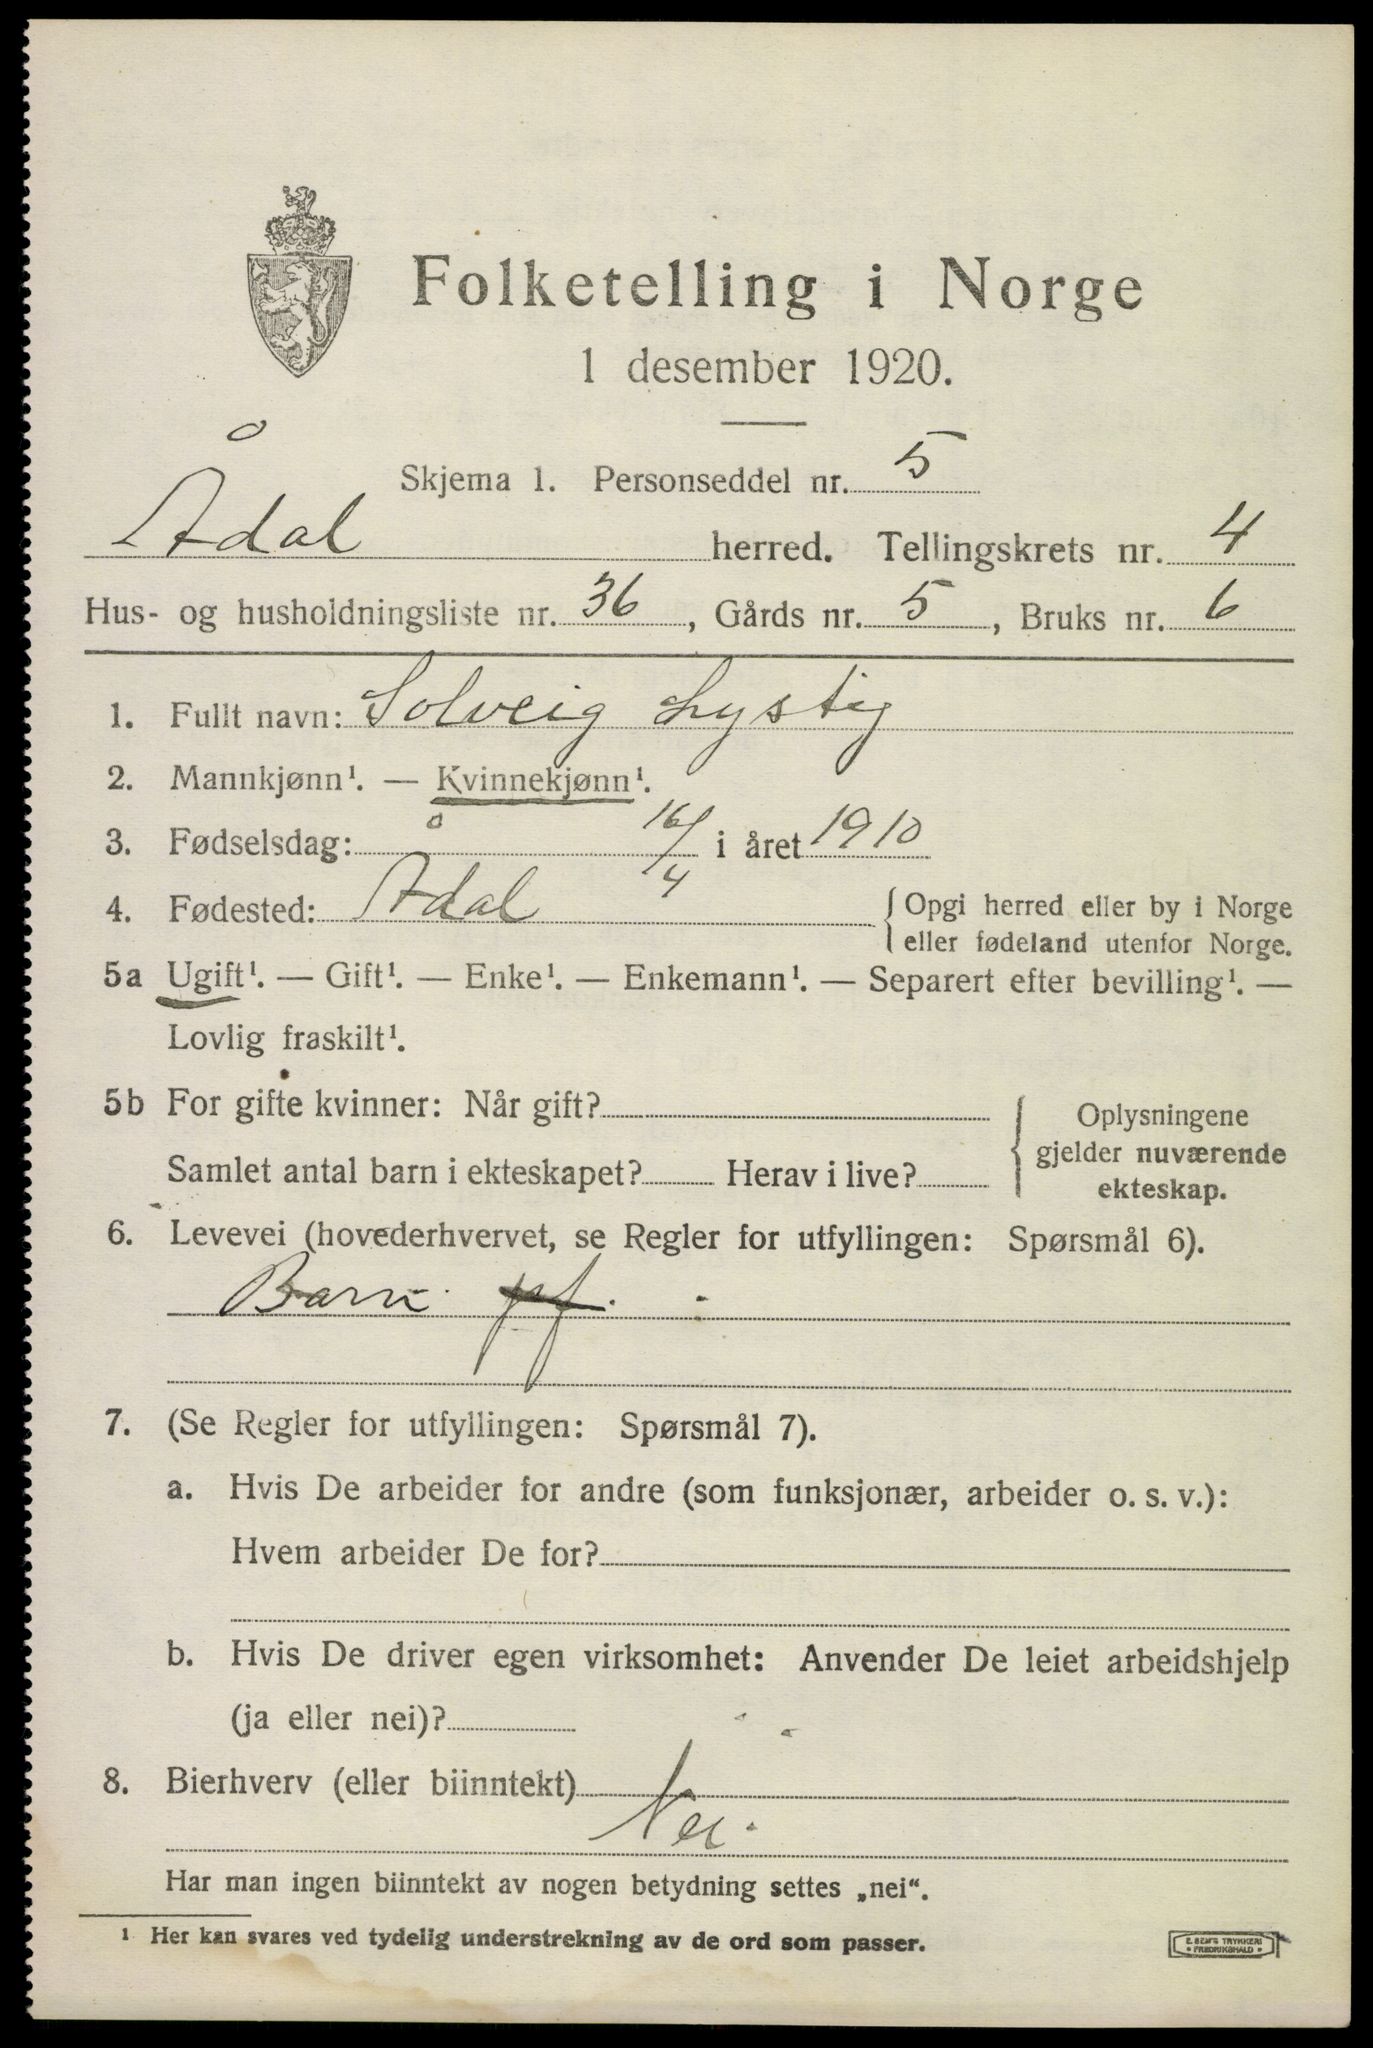 Folketelling i Norge
1 desember 1920.
Skjema 1. Personseddel nr. 5
Ådal herred. Tellingskrets nr. 4
Hus- og husholdningsliste nr. 36, Gårds nr. 5, Bruks nr. 6
1. Fullt navn: Solveig Lystig
2. Mannkjønn¹. — Kvinnekjønn¹.
3. Fødselsdag: 16/4 i året 1910
4. Fødested: Ådal { Opgi herred eller by i Norge
eller fødeland utenfor Norge.
5a Ugift¹. — Gift¹. — Enke¹. — Enkemann¹. — Separert efter bevilling¹. —
Lovlig fraskilt¹.
5b For gifte kvinner: Når gift?
Samlet antal barn i ekteskapet? Herav i live?
{ Oplysningene
gjelder nuværende
ekteskap.
6. Levevei (hovederhvervet, se Regler for utfyllingen: Spørsmål 6).
Barn pf.
7. (Se Regler for utfyllingen: Spørsmål 7).
a. Hvis De arbeider for andre (som funksjonær, arbeider o. s. v.):
Hvem arbeider De for?
b. Hvis De driver egen virksomhet: Anvender De leiet arbeidshjelp
(ja eller nei)?
8. Bierhverv (eller biinntekt)
Nei.
Har man ingen biinntekt av nogen betydning settes „nei“.
¹ Her kan svares ved tydelig understrekning av de ord som passer.
E. SEM'S TRYKKERI
• FREDRIKSHALD •